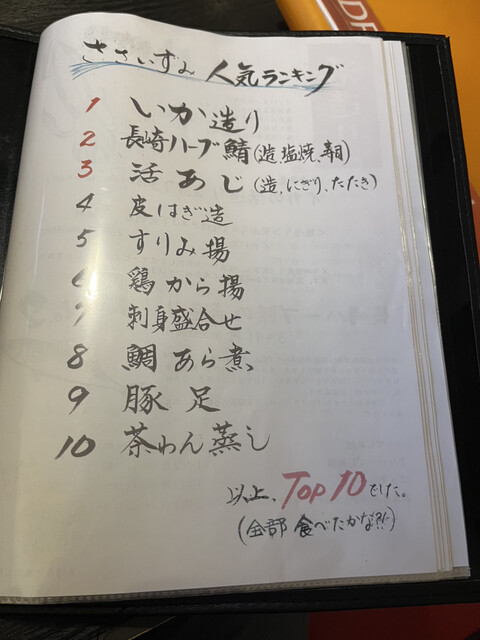 ささいずみ 人気ランキング
1 いか造り
2 長崎ハーブ鯖(造、塩焼、朝)
3 活あじ(造、にぎり、たたき)
4 皮はぎ造
5 すりみ揚
6 鶏から揚
7 刺身盛合せ
8 鯛あら煮
9 豚足
10 茶わん蒸し
以上、Top 10でした。
(全部食べたかな?!)